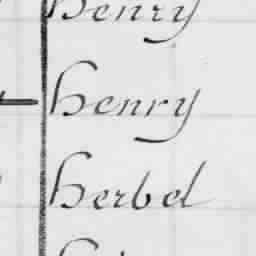 henry
henry
herbel